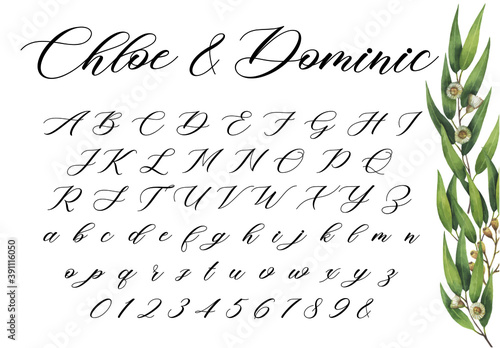 Chloe & Dominic
A B C D E F G H I
J K L M N O P Q
R S T U V W X Y Z
a b c d e f g h i j k l m n
o p q r s t u v w x y z
0 1 2 3 4 5 6 7 8 9 &
Adobe Stock | #391116050